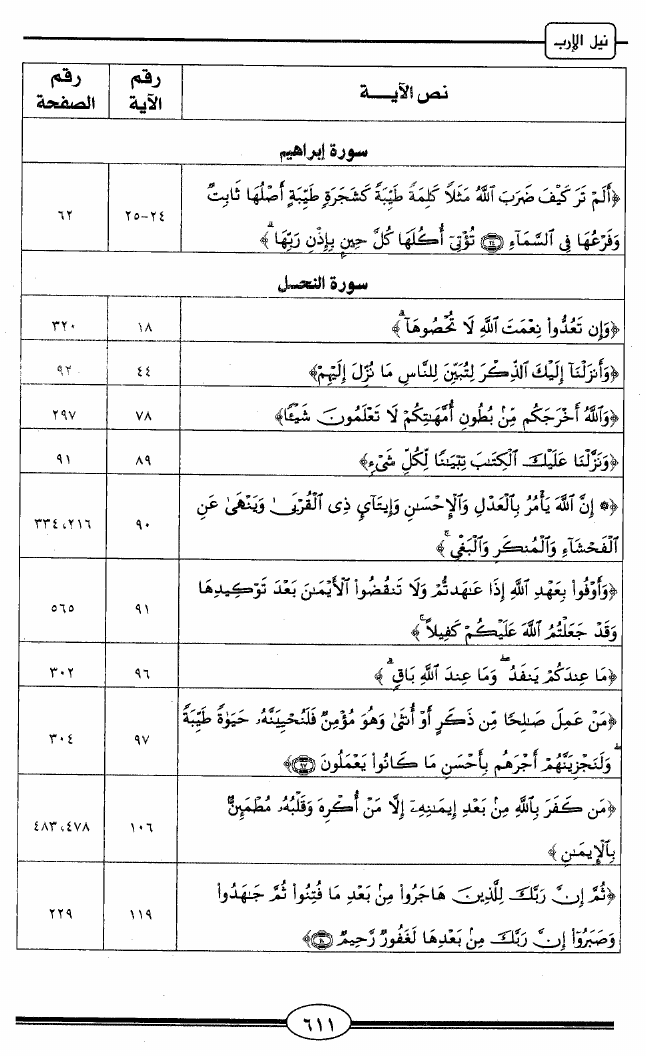 نيل الإرب
نص الآيـــة رقم الآية رقم الصفحة
سورة إبراهيم
﴿أَلَمْ تَرَ كَيْفَ ضَرَبَ اللَّهُ مَثَلًا كَلِمَةً طَيِّبَةً كَشَجَرَةٍ طَيِّبَةٍ أَصْلُهَا ثَابِتٌ
وَفَرْعُهَا فِي السَّمَاءِ ۝٢٤ تُؤْتِي أُكُلَهَا كُلَّ حِينٍ بِإِذْنِ رَبِّهَا﴾ ٢٤-٢٥ ٦٢
سورة النحـل
﴿وَإِن تَعُدُّوا نِعْمَتَ اللَّهِ لَا تُحْصُوهَا﴾ ١٨ ٣٢٠
﴿وَأَنزَلْنَا إِلَيْكَ الذِّكْرَ لِتُبَيِّنَ لِلنَّاسِ مَا نُزِّلَ إِلَيْهِمْ﴾ ٤٤ ٩٢
﴿وَاللَّهُ أَخْرَجَكُم مِّنْ بُطُونِ أُمَّهَٰتِكُمْ لَا تَعْلَمُونَ شَيْئًا﴾ ٧٨ ٢٩٧
﴿وَنَزَّلْنَا عَلَيْكَ الْكِتَٰبَ تِبْيَٰنًا لِّكُلِّ شَيْءٍ﴾ ٨٩ ٩١
﴿۞ إِنَّ اللَّهَ يَأْمُرُ بِالْعَدْلِ وَالْإِحْسَٰنِ وَإِيتَآئِ ذِي الْقُرْبَىٰ وَيَنْهَىٰ عَنِ
الْفَحْشَاءِ وَالْمُنكَرِ وَالْبَغْيِ﴾ ٩٠ ٢١٦، ٣٣٤
﴿وَأَوْفُوا بِعَهْدِ اللَّهِ إِذَا عَٰهَدتُّمْ وَلَا تَنقُضُوا الْأَيْمَٰنَ بَعْدَ تَوْكِيدِهَا
وَقَدْ جَعَلْتُمُ اللَّهَ عَلَيْكُمْ كَفِيلًا﴾ ٩١ ٥٦٥
﴿مَا عِندَكُمْ يَنفَدُ ۖ وَمَا عِندَ اللَّهِ بَاقٍ﴾ ٩٦ ٣٠٢
﴿مَنْ عَمِلَ صَٰلِحًا مِّن ذَكَرٍ أَوْ أُنثَىٰ وَهُوَ مُؤْمِنٌ فَلَنُحْيِيَنَّهُۥ حَيَوٰةً طَيِّبَةً
ۖ وَلَنَجْزِيَنَّهُمْ أَجْرَهُم بِأَحْسَنِ مَا كَانُوا يَعْمَلُونَ ۝٩٧﴾ ٩٧ ٣٠٤
﴿مَن كَفَرَ بِاللَّهِ مِنْ بَعْدِ إِيمَٰنِهِۦٓ إِلَّا مَنْ أُكْرِهَ وَقَلْبُهُۥ مُطْمَئِنٌّ
بِالْإِيمَٰنِ﴾ ١٠٦ ٤٧٨، ٤٨٣
﴿ثُمَّ إِنَّ رَبَّكَ لِلَّذِينَ هَاجَرُوا مِنْ بَعْدِ مَا فُتِنُوا ثُمَّ جَٰهَدُوا
وَصَبَرُوا إِنَّ رَبَّكَ مِنْ بَعْدِهَا لَغَفُورٌ رَّحِيمٌ﴾ ١١٩ ٢٢٩
٦١١